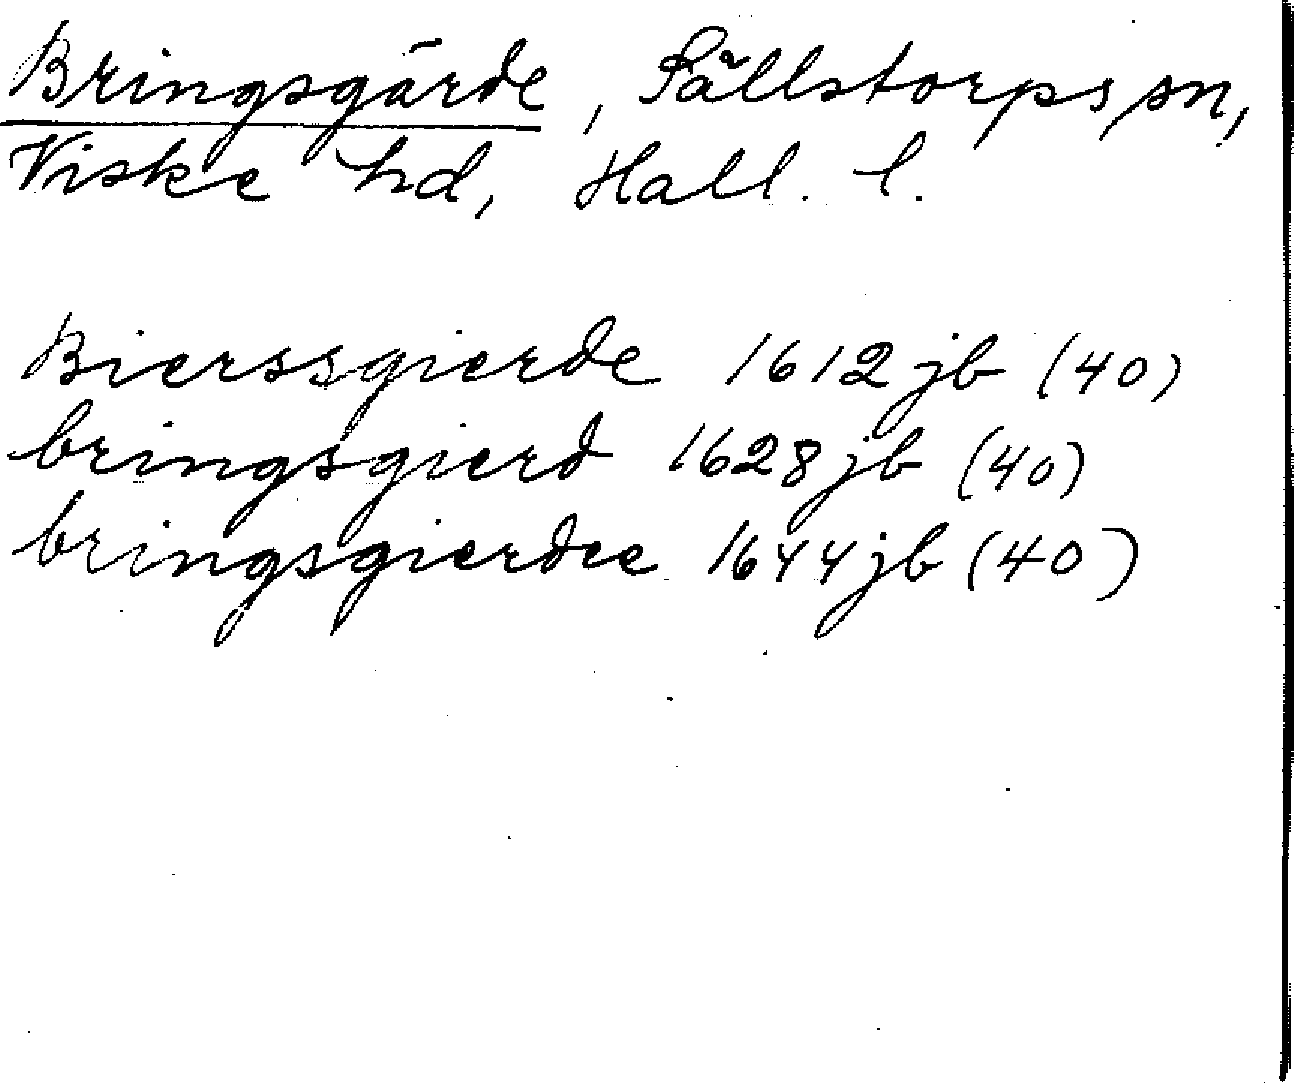 Bringsgärde, Sällstorps sn,
Viske hd, Hall. l.
Bierssgierde 1612 jb (40)
bringsgierd 1628 jb (40)
bringsgierdee 1644 jb (40)